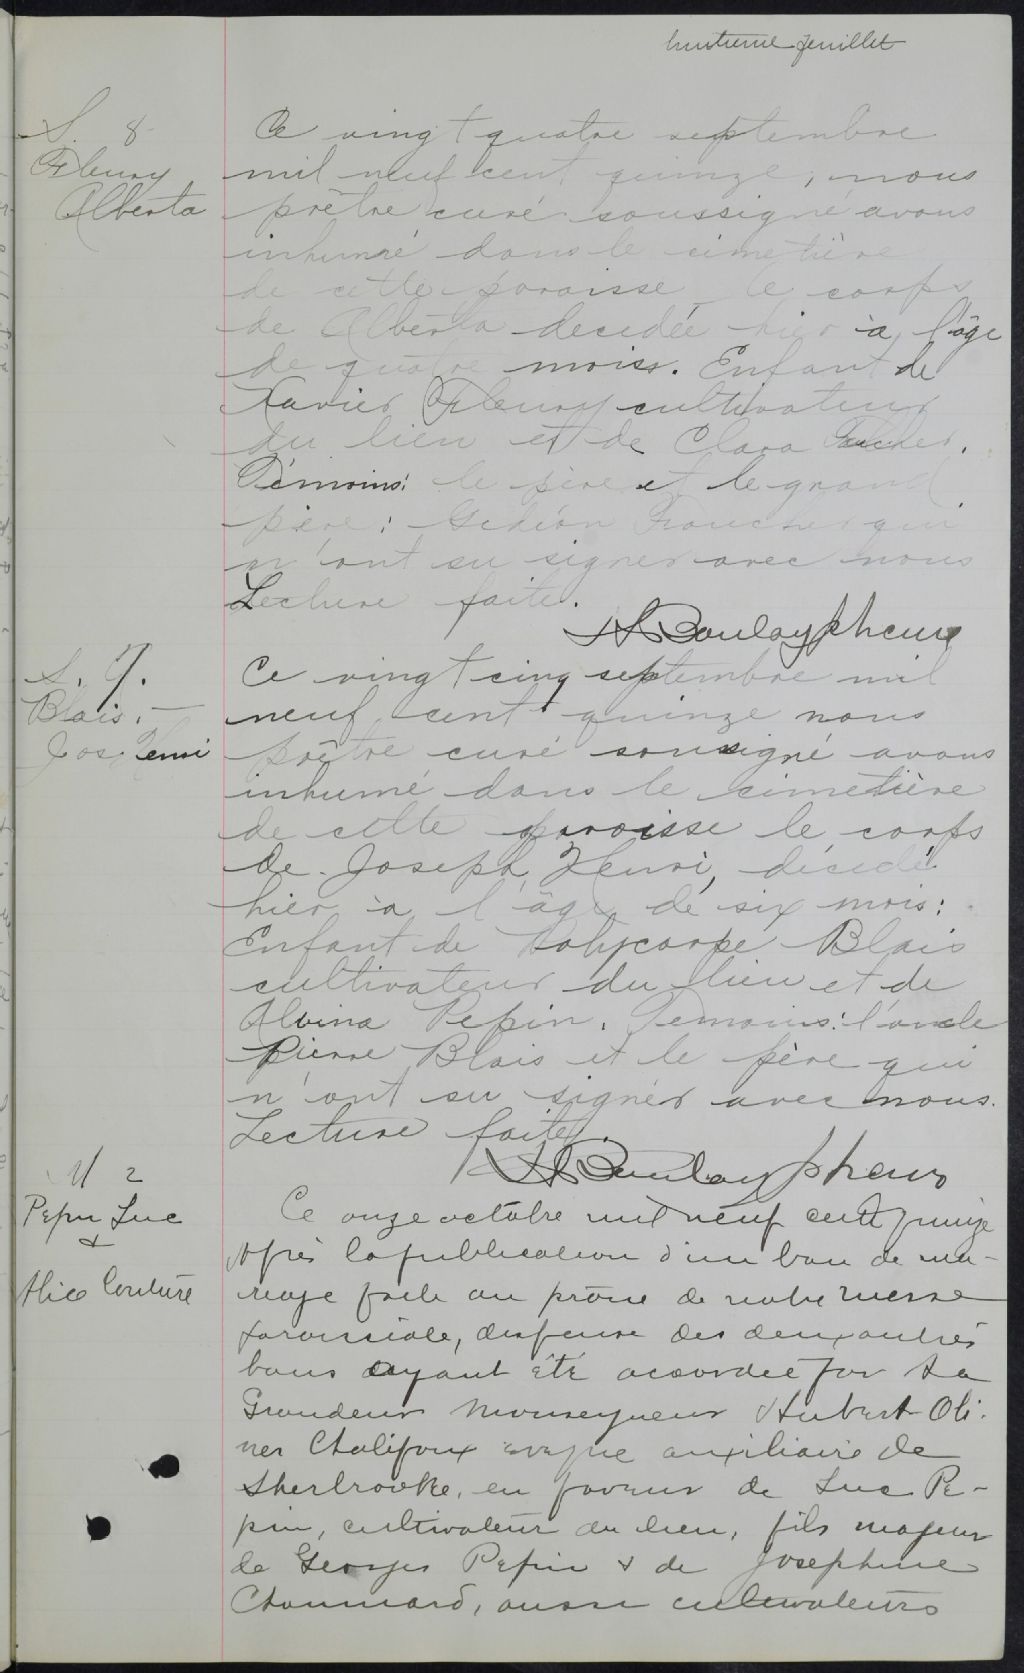 huitieme feuillet
S. 8
Fleury
Alberta
Ce vingt quatre septembre
mil neuf cent quinze, nous
prêtre curé soussigné avons
inhumé dans le cimetière
de cette paroisse le corps
de Alberta decedée hier à l'âge
de quatre mois. Enfant de
Xavier Fleury cultivateur
du lieu et de Clara Faucher.
Témoins: le père et le grand
père: Gedéon Faucher qui
n'ont su signer avec nous
Lecture faite.
Boulay ptre curé
S. 9.
Blais.
Jos. Henri
Ce vingt cinq septembre mil
neuf cent quinze nous
prêtre curé soussigné avons
inhumé dans le cimetière
de cette paroisse le corps
de Joseph Henri, décédé
hier à l'âge de six mois:
Enfant de Polycarpe Blais
cultivateur du lieu et de
Alvina Pepin. Temoins: l'oncle
Pierre Blais et le père qui
n'ont su signer avec nous.
Lecture faite.
Boulay ptre curé
M 2
Pepin Luc
&
Alice Couture
Ce onze octobre mil neuf cent quinze
Après la publication d'un ban de ma-
riage faite au prône de notre messe
paroissiale, dispense des deux autres
bans ayant été accordée par Sa
Grandeur Monseigneur Hubert Oli-
vier Chalifoux évêque auxiliaire de
Sherbrooke, en faveur de Luc Pe-
pin, cultivateur du lieu, fils majeur
de Georges Pepin & de Josephine
Chouinard, aussi cultivateurs